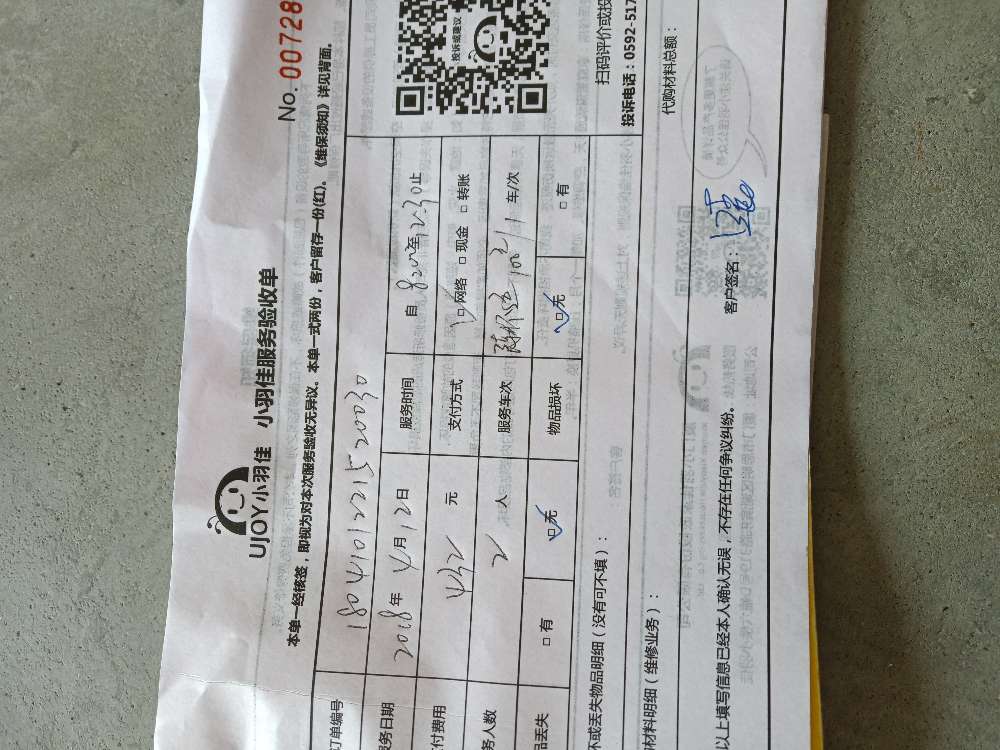 No. 00728
UJOY小羽佳 小羽佳服务验收单
本单一经核签，即视为对本次服务验收无异议。本单一式两份，客户留存一份(红)。《维保须知》详见背面。
订单编号 180410122152 0030
务日期 2018年4月12日 服务时间 自8:00至12:30止
付费用 432元 支付方式 □网络 □现金 □转账
务人数 2人 服务车次 1车/次
品丢失 □有 □无 物品损坏 □无 □有
坏或丢失物品明细（没有可不填）：
投诉或建议
扫码评价或投
投诉电话：0592-517
材料明细（维修业务）： 代购材料总额：
以上填写信息已经本人确认无误，不存在任何争议纠纷。 客户签名：